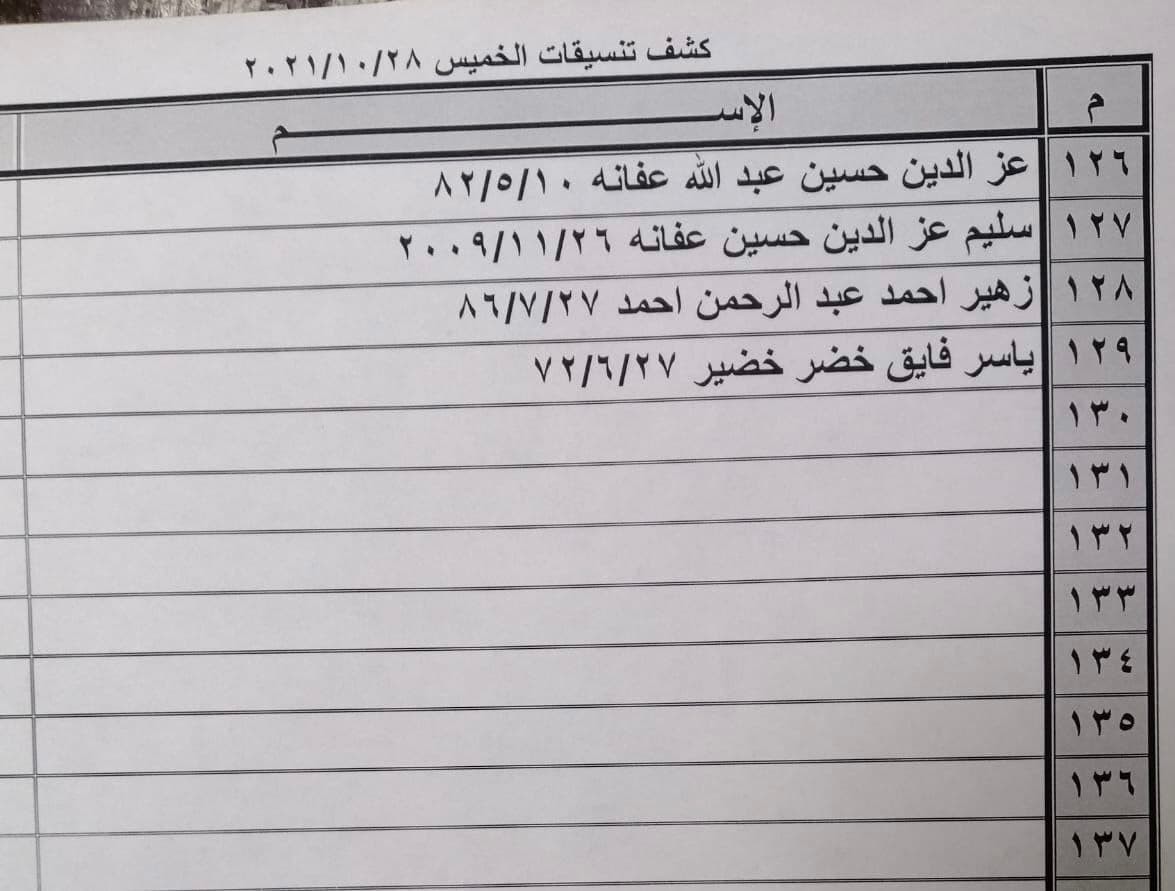 كشف تنسيقات الخميس ٢٠٢١/١٠/٢٨
م الإســـــــم
١٢٦ عز الدين حسين عبد الله عفانه ٨٢/٥/١٠
١٢٧ سليم عز الدين حسين عفانه ٢٠٠٩/١١/٢٦
١٢٨ زهير احمد عبد الرحمن احمد ٨٦/٧/٢٧
١٢٩ ياسر فايق خضر خضير ٧٢/٦/٢٧
١٣٠
١٣١
١٣٢
١٣٣
١٣٤
١٣٥
١٣٦
١٣٧